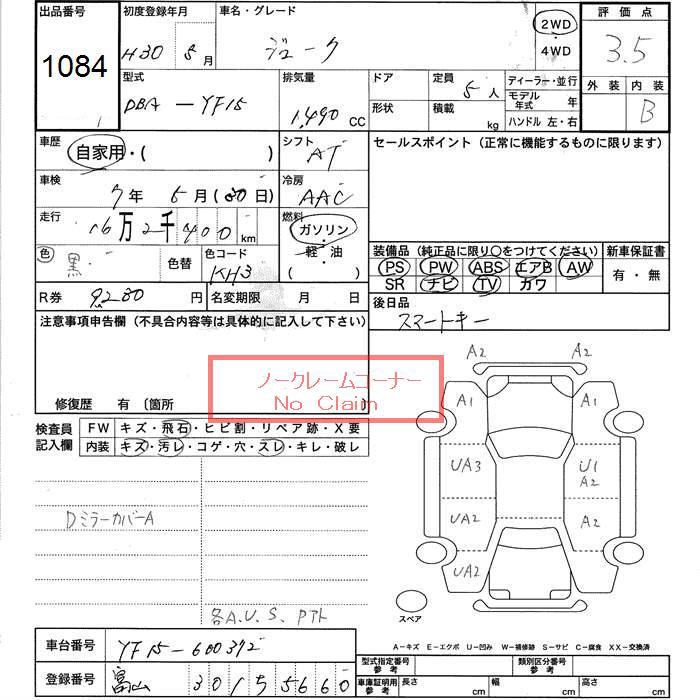 出品番号 初度登録年月 車名・グレード 2WD 評価点
1084 H30 8月 ジューク 4WD 3.5
型式 排気量 ドア 定員 ディーラー・並行 外装 内装
DBA-YF15 1,490 CC 5人 モデル年式 年 B
形状 積載 kg ハンドル 左・右
車歴 自家用・( ) シフト AT セールスポイント(正常に機能するものに限ります)
車検 7年 5月(30日) 冷房 AAC
走行 16万2千400km 燃料 ガソリン・軽・油( )
色 黒 色替 色コード KH3
装備品(純正品に限り○をつけてください) 新車保証書
PS PW ABS エアB AW 有・無
SR ナビ TV カワ
R券 9,280円 名変期限 月 日 後日品
スマートキー
注意事項申告欄(不具合内容等は具体的に記入して下さい)
ノークレームコーナー
No Claim
修復歴 有〔箇所 〕
検査員記入欄 FW キズ・飛石・ヒビ割・リペア跡・X要
内装 キズ・汚レ・コゲ・穴・スレ・キレ・破レ
DミラーカバーA
各A.U.S.Pアト
A2 A2
A1 A1
UA3 U1
A2
UA2 A2
UA2
スペア
A-キズ E-エクボ U-凹み W-補修跡 S-サビ C-腐食 XX-交換済
車台番号 YF15-600372
登録番号 富山 301ち5660
型式指定番号参考 類別区分番号参考
車庫証明用参考 長さ cm 幅 cm 高さ cm